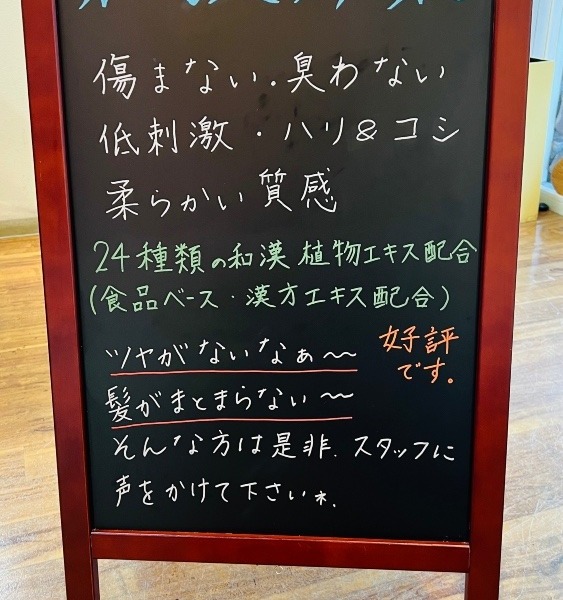 傷まない.臭わない
低刺激・ハリ&コシ
柔らかい質感
24種類の和漢植物エキス配合
(食品ベース・漢方エキス配合)
ツヤがないなぁ〜
髪がまとまらない〜
好評
です。
そんな方は是非.スタッフに
声をかけて下さいネ.